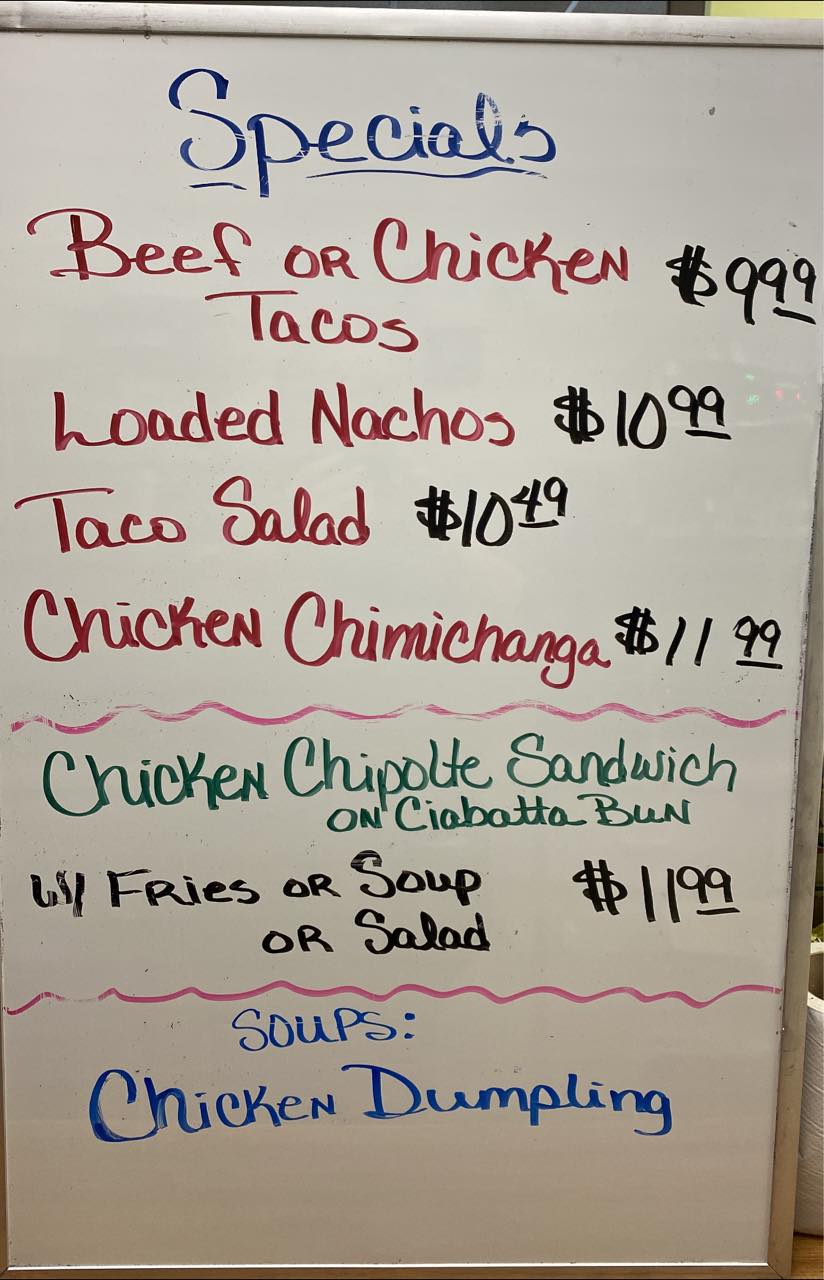 Specials
Beef OR Chicken $9.99
Tacos
Loaded Nachos $10.99
Taco Salad $10.49
Chicken Chimichanga $11.99
Chicken Chipolte Sandwich
ON Ciabatta BUN
W/ FRies OR Soup $11.99
OR Salad
SOUPS:
Chicken Dumpling